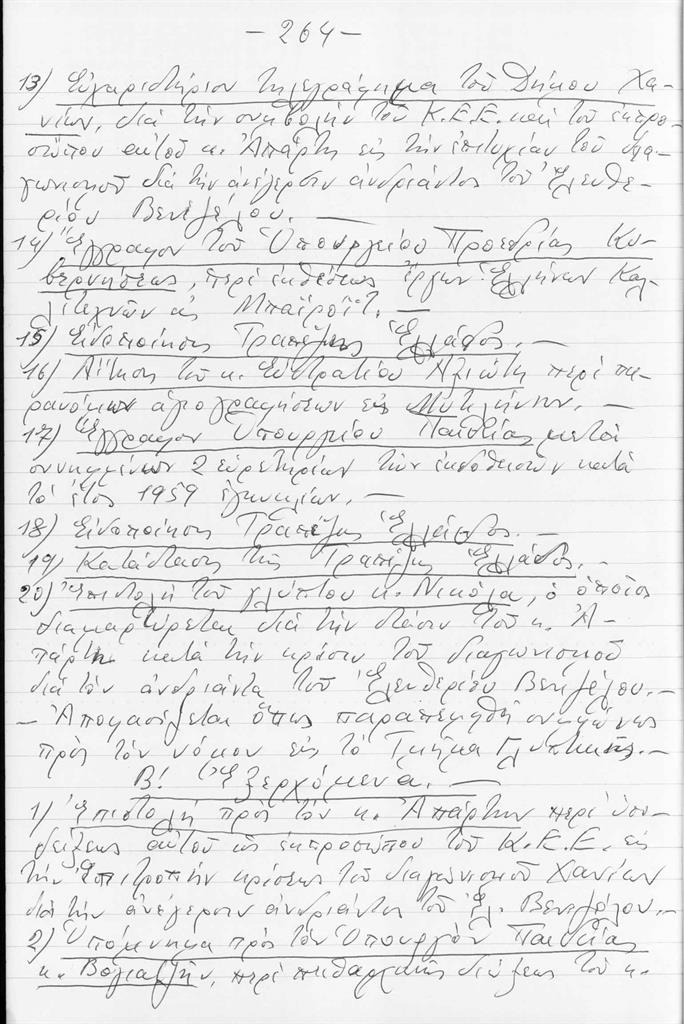 – 264 –
13) Εὐχαριστήριον τηλεγράφημα τοῦ Δήμου Χα-
νίων, διά τήν συμβολήν τοῦ Κ.Ε.Ε. καί τοῦ ἐκπρο-
σώπου αὐτοῦ κ. Ἀπάρτη εἰς τήν ἐπιτυχίαν τοῦ δια-
γωνισμοῦ διά τήν ἀνέγερσιν ἀνδριάντος τοῦ Ἐλευθε-
ρίου Βενιζέλου. –
14) Ἔγγραφον τοῦ Ὑπουργείου Προεδρίας Κυ-
βερνήσεως, περί ἐκθέσεως ἔργων Ἑλλήνων Καλ-
λιτεχνῶν εἰς Μπαϊρόϊτ. –
15) Εἰδοποίησις Τραπέζης Ἑλλάδος. –
16) Αἴτησις τοῦ κ. Εὐστρατίου Ἀξιώτη περί πα-
ρανόμων ἁγιογραφήσεων εἰς Μυτιλήνην. –
17) Ἔγγραφον Ὑπουργείου Παιδείας μετά
συνημμένων 2 εὑρετηρίων τῶν ἐκδοθεισῶν κατά
τό ἔτος 1959 ἐγκυκλίων. –
18) Εἰδοποίησις Τραπέζης Ἑλλάδος. –
19) Κατάστασις τῆς Τραπέζης Ἑλλάδος. –
20) Ἐπιστολή τοῦ γλύπτου κ. Νικόλα, ὁ ὁποῖος
διαμαρτύρεται διά τήν στάσιν τοῦ κ. Ἀ-
πάρτη κατά τήν κρίσιν τοῦ διαγωνισμοῦ
διά τόν ἀνδριάντα τοῦ Ἐλευθερίου Βενιζέλου. –
– Ἀποφασίζεται ὅπως παραπεμφθῆ συμφώνως
πρός τόν νόμον εἰς τό Τμῆμα Γλυπτικῆς. –
Β! Ἐξερχόμενα. –
1) Ἐπιστολή πρός τόν κ. Ἀπάρτην περί ὑπο-
δείξεως αὐτοῦ ὡς ἐκπροσώπου τοῦ Κ.Ε.Ε. εἰς
τήν Ἐπιτροπήν κρίσεως τοῦ διαγωνισμοῦ Χανίων
διά τήν ἀνέγερσιν ἀνδριάντος τοῦ Ἐλ. Βενιζέλου. –
2) Ὑπόμνημα πρός τόν Ὑπουργόν Παιδείας
κ. Βογιατζῆν, περί πειθαρχικῆς διώξεως τοῦ κ.